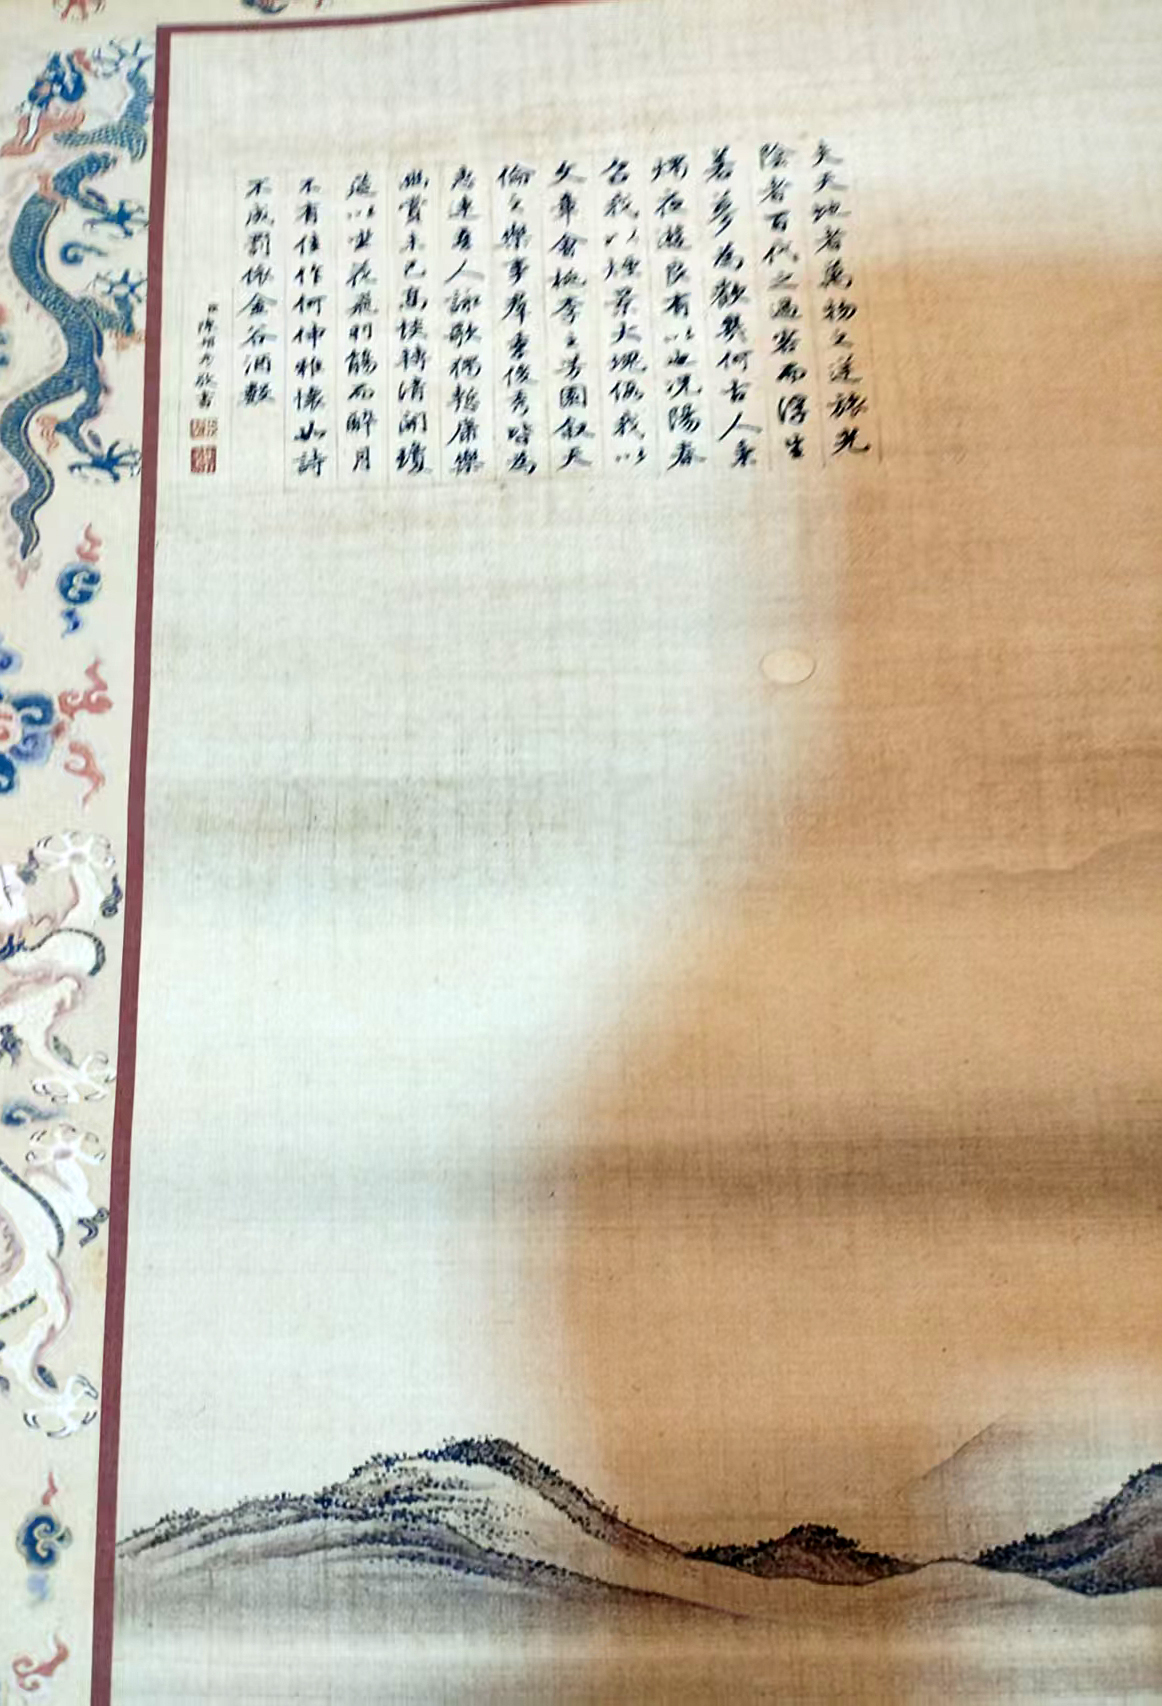 夫天地者萬物之逆旅光
陰者百代之過客而浮生
若夢為歡幾何古人秉
燭夜遊良有以也況陽春
召我以煙景大塊假我以
文章會桃李之芳園叙天
倫之樂事羣季俊秀皆為
惠連吾人詠歌獨慚康樂
幽賞未已高談轉清開瓊
筵以坐花飛羽觴而醉月
不有佳作何伸雅懷如詩
不成罰依金谷酒數
臣陳邦彥敬書